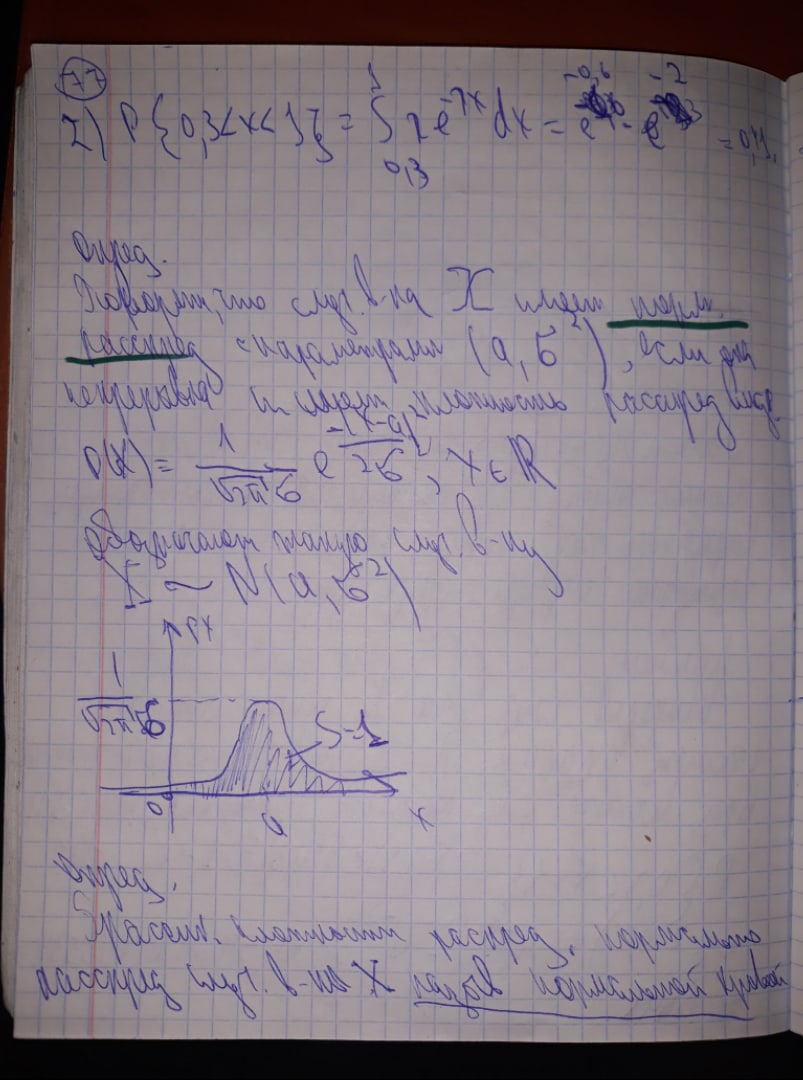 77
2) P{0,3<x<1} = ∫ 2e^{-2x} dx = e^{-0,6} - e^{-2} = 0,41.
1
0,3
Опред.
Говорят, что случ. в-на X имеет норм.
распред с параметрами (a, σ²), если она
непрерывна и имеет плотность распред вида
p(x) = 1/(√2π σ) e^{-(x-a)²/2σ²}, x ∈ ℝ
обозначают такую случ. в-ну
X ~ N(a, σ²)
px
1/(√2π σ)
S=1
0
a
x
Опред.
плотности распред. нормально
распред случ. в-ны X назыв нормальной кривой